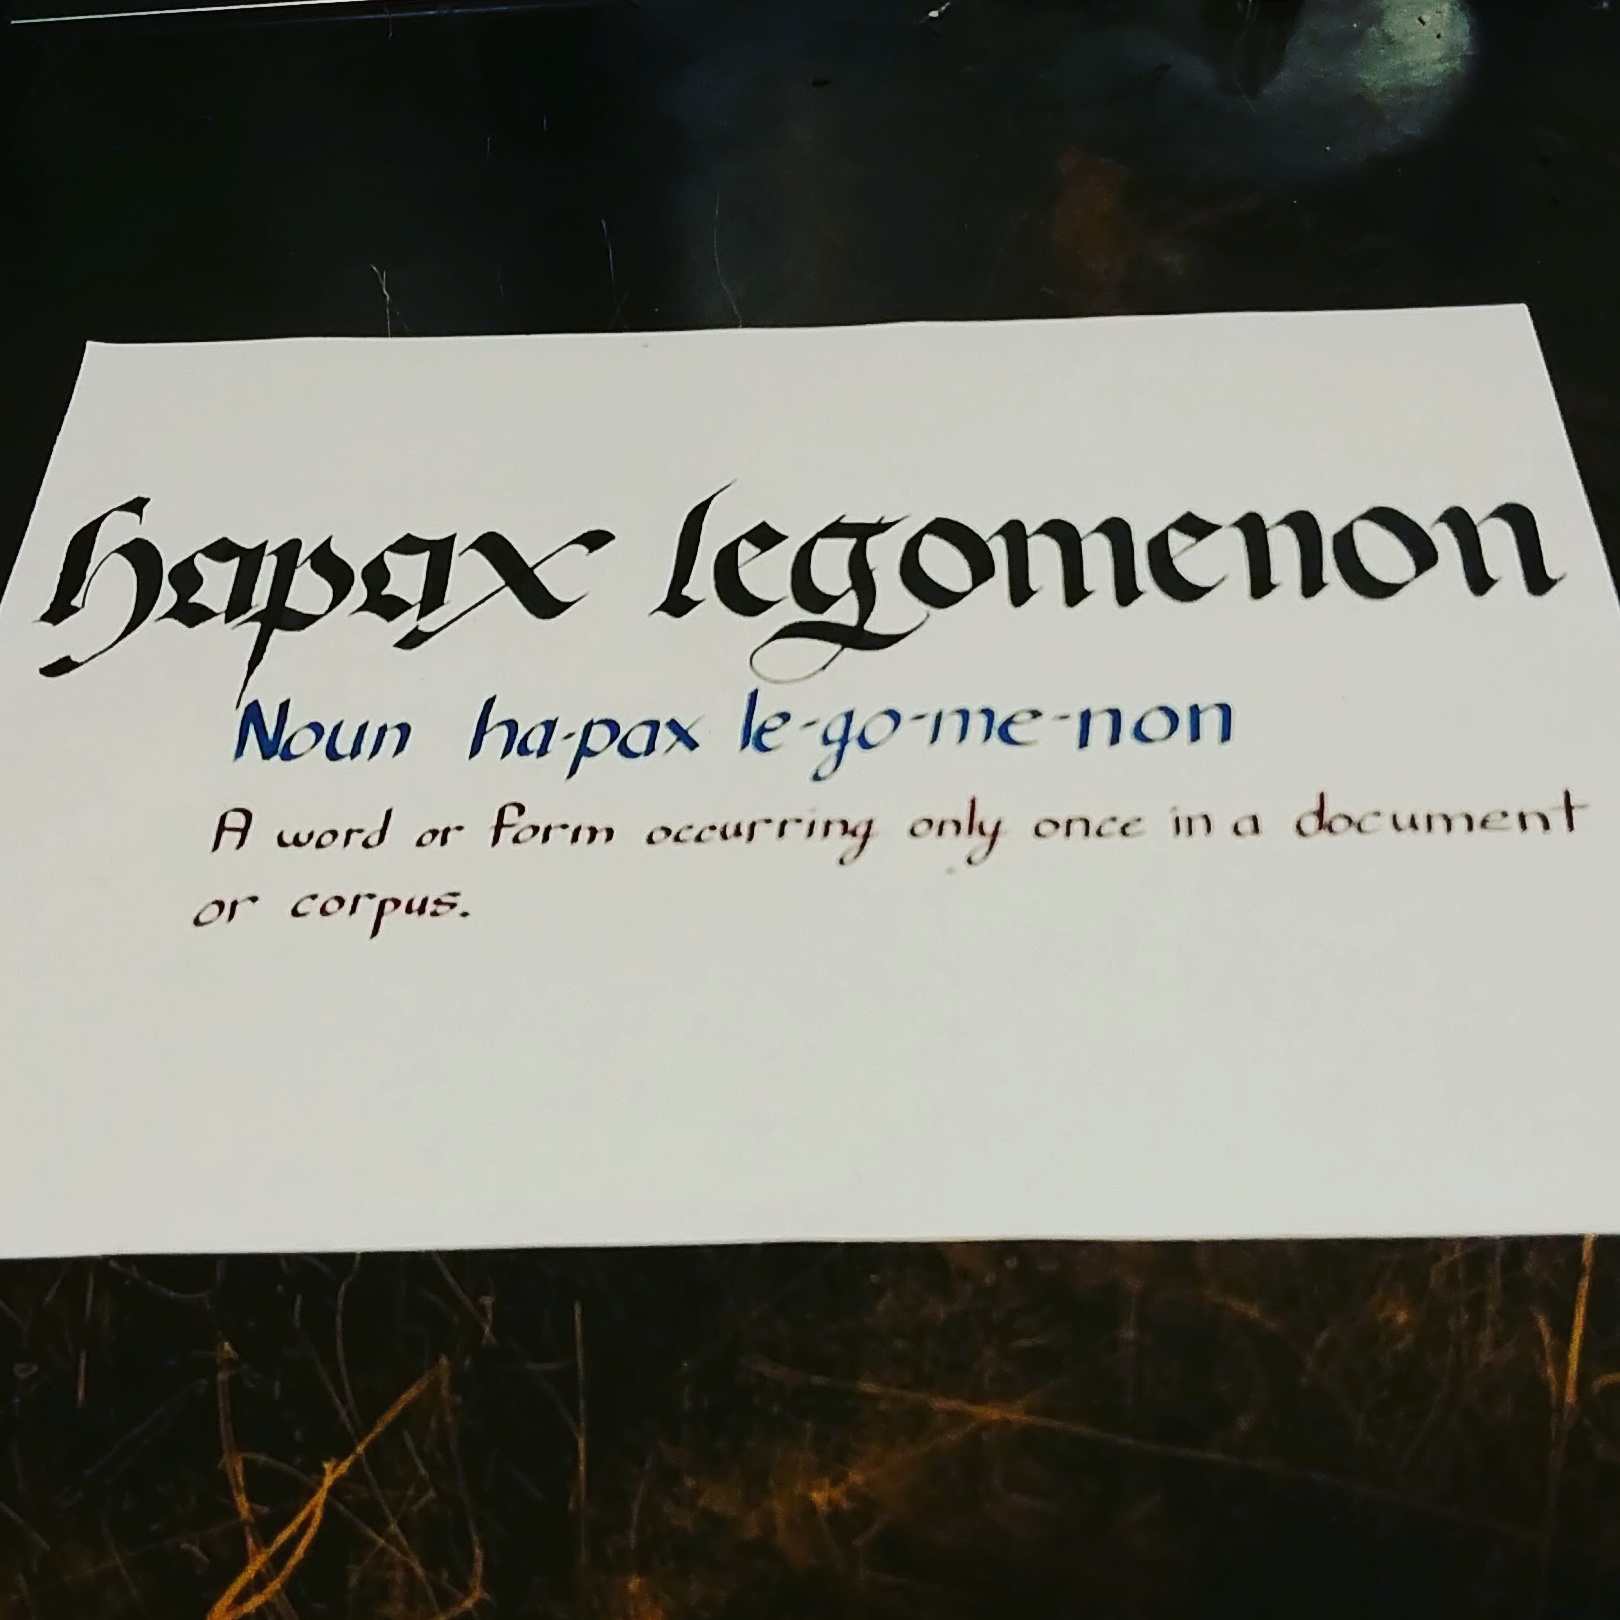 hapax legomenon
Noun ha-pax le-go-me-non
A word or form occurring only once in a document
or corpus.